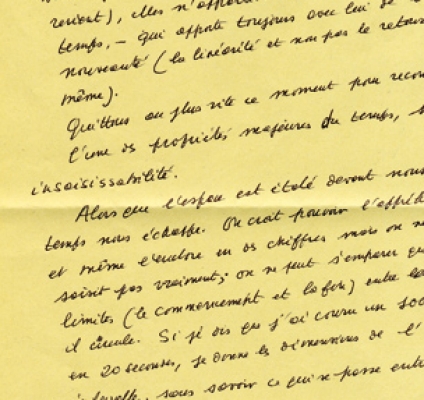 revient), elles n'apporta
temps, - qui apporte toujours avec lui de
nouveauté (la linéarité et non pas le retour
même).
Quittons au plus vite ce moment pour recon
l'une des propriétés majeures du temps,
insaisissabilité.
Alors que l'espace est étalé devant nous
temps nous échappe. On croit pouvoir l'appréh
et même l'enclore en des chiffres mais on ne
saisit pas vraiment; on ne peut s'emparer que
limites (le commencement et la fin) entre
il circule. Si je dis que j'ai couru un 100
en 20 secondes, je donne les dimensions de l'
sans savoir ce qui se passe entre